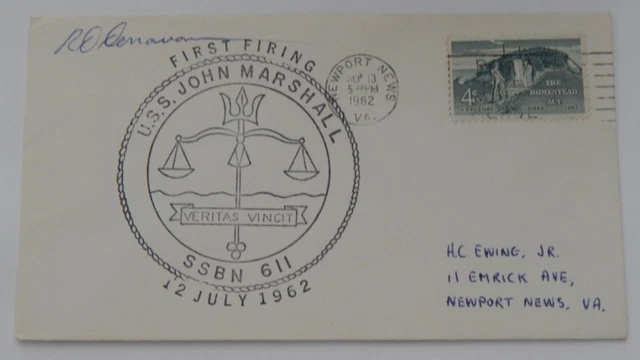 RD Donavan
FIRST FIRING
U.S.S. JOHN MARSHALL
VERITAS VINCIT
SSBN 611
12 JULY 1962
NEWPORT NEWS
SEP 13
1962
VA.
4¢
THE
HOMESTEAD
ACT
H.C. EWING, JR.
11 EMRICK AVE,
NEWPORT NEWS, VA.